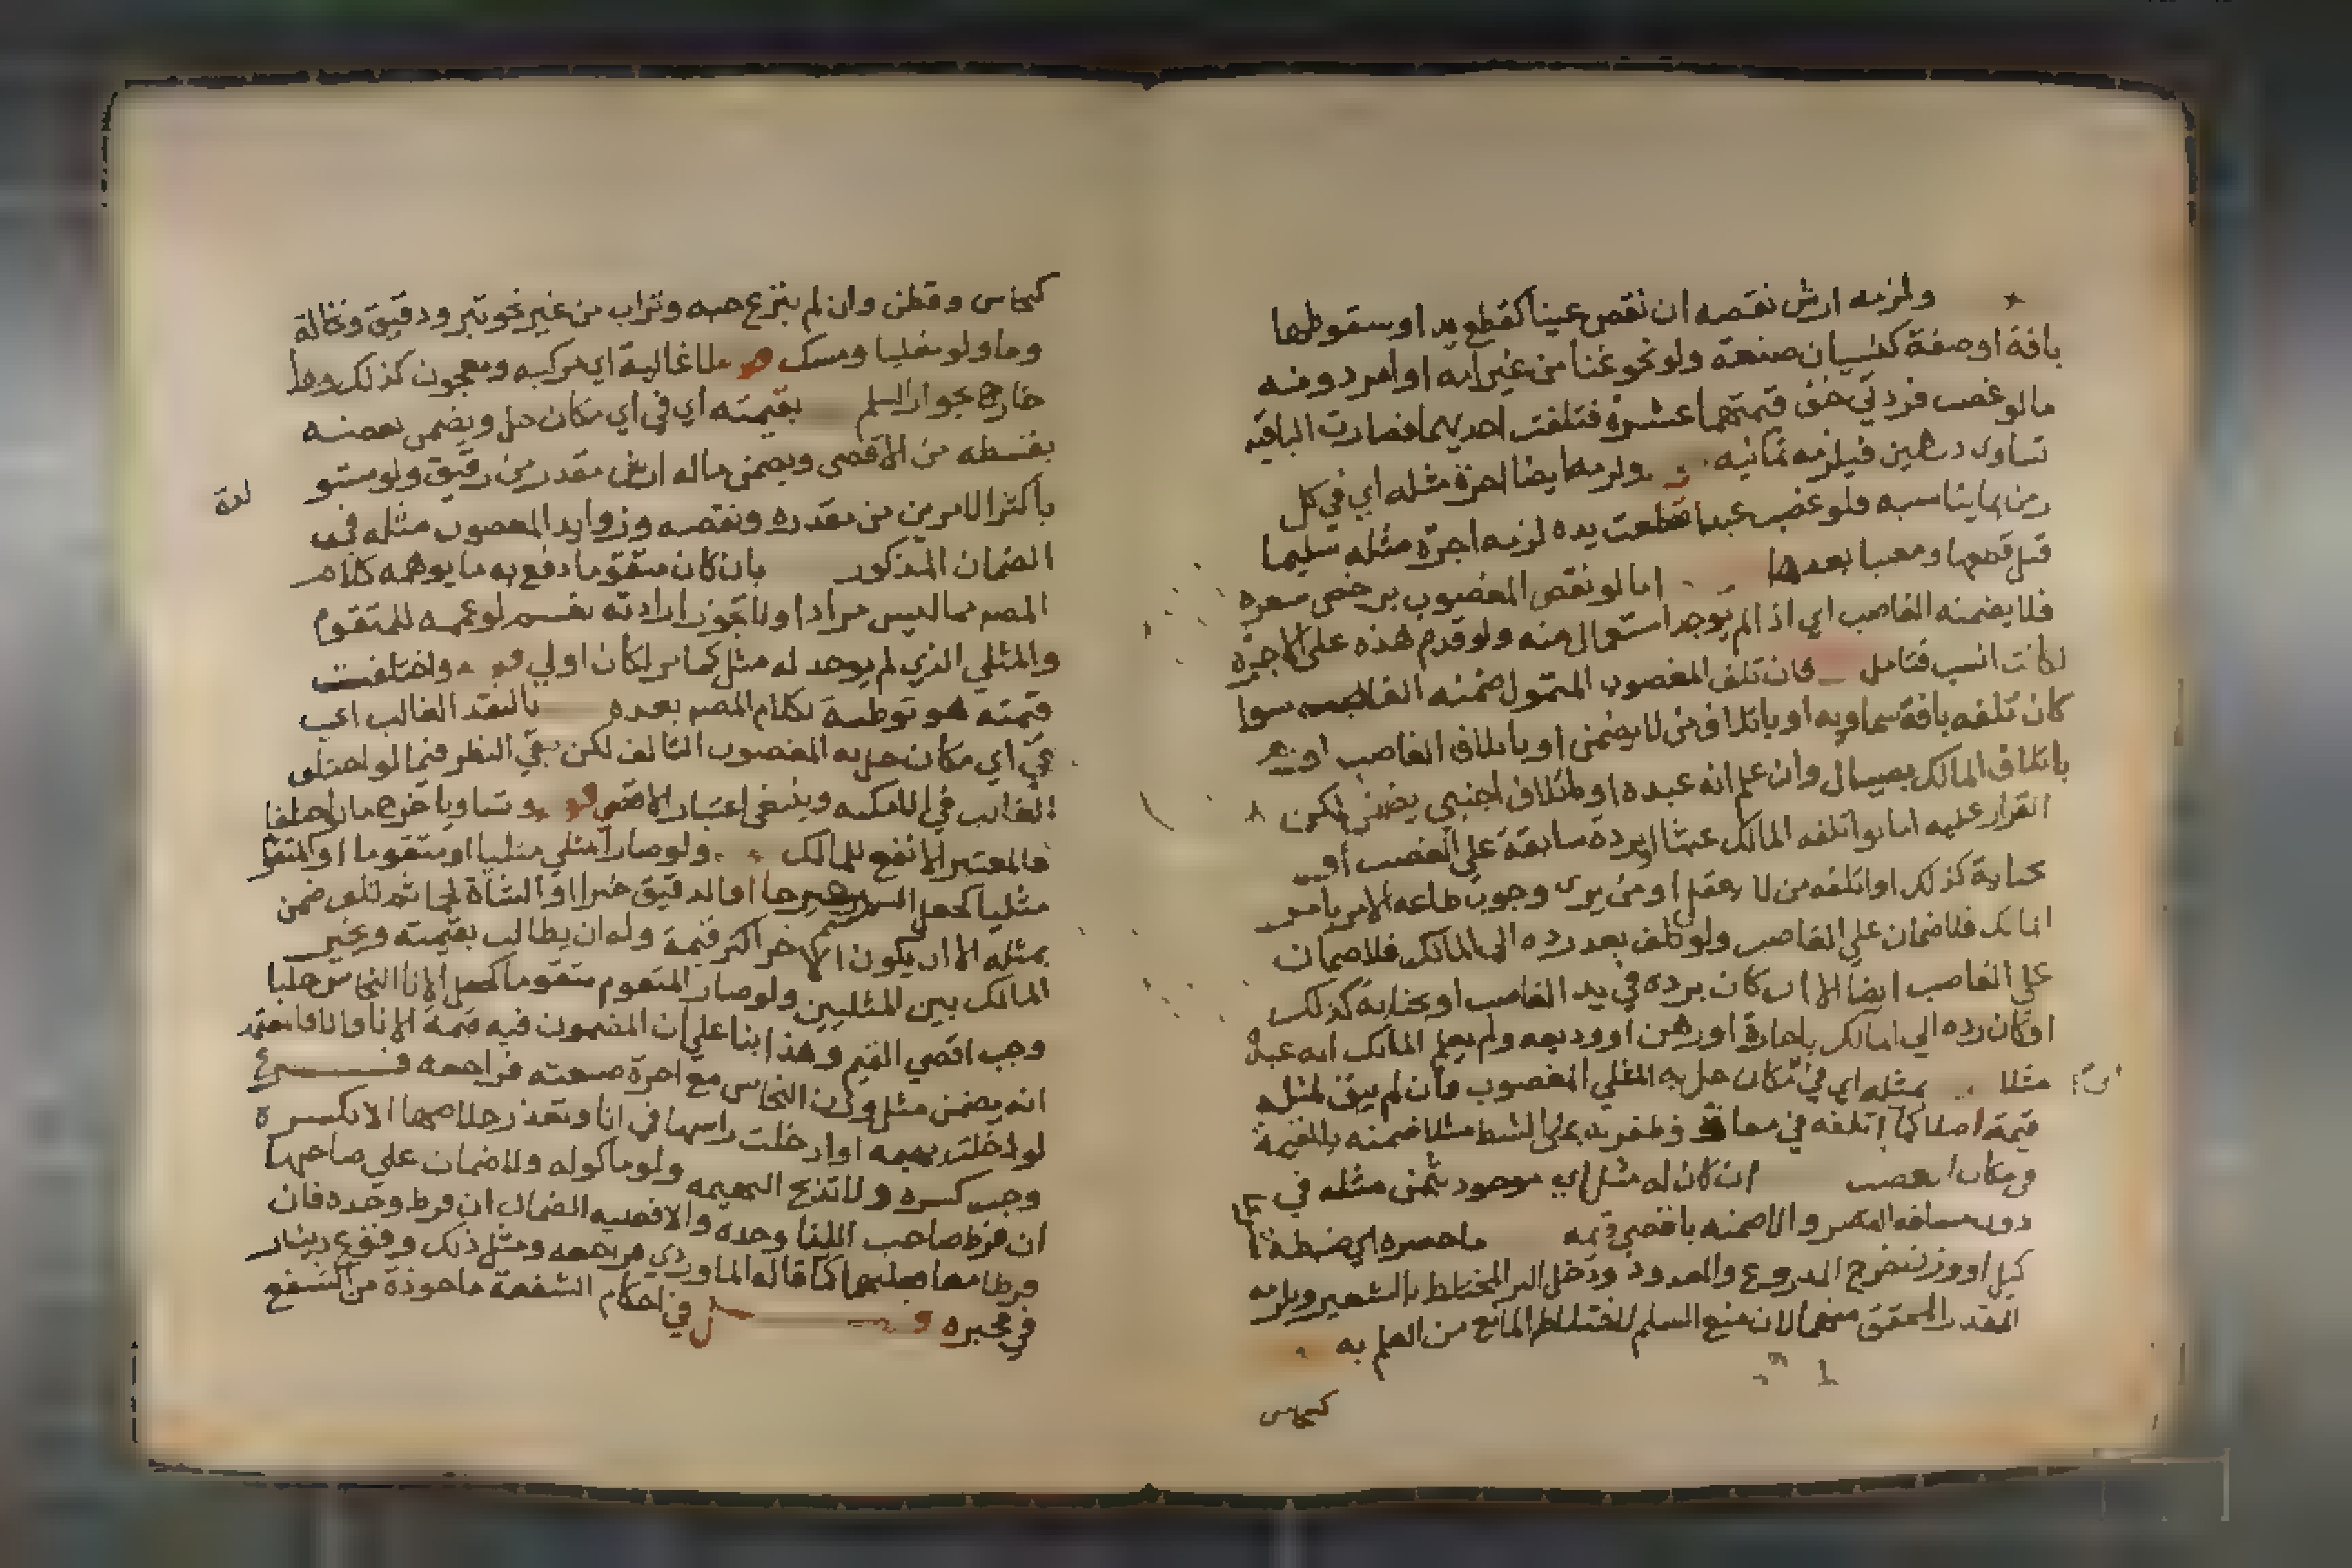 ولزمه ارش نقصه ان نقص عيناكقطع يد او سقوطها
بافة اوصفة كنسيان صنعة ولو نحو غنا من غير امه او امرد ومنه
مالو غصب فردتي خف قيمتهما عشرة فتلفت احديهما فصارت الباقيه
تساوى درهمين فيلزمه ثمانيه و ولزمه ايضا اجرة مثله اي في كل
زمن بما يناسبه فلو غصب عبدا فقطعت يده لزمه اجرة مثله سليما
قبل قطعها ومعيبا بعدها اما لو نقص المغصوب برخص سعره
فلا يضمنه الغاصب اي اذا لم يوجد استعمال منه ولو قدم هذه على الاجرة
لكانت انسب فتامل فان تلف المغصوب المتمول ضمنه الغاصب سوا
كان تلفه بافة سماويه او باتلاف من لا يضمن او باتلاف الغاصب او
باتلاف المالك بصيال وان علم انه عبده او باتلاف اجنبي يضمن لكن
القرار عليه اما لو اتلفه المالك عبثا او بردة سابقة علي الغصب او
بجناية كذلك او اتلفه من لا يعقل او من يرى وجوب طاعه الامر بامر
المالك فلا ضمان علي الغاصب ولو تلف بعد رده الى المالك فلا ضمان
علي الغاصب ايضا الا ان كان برده في يد الغاصب او بجناية كذلك
او كان رده الي المالك باجارة او رهن او وديعه ولم يعلم المالك انه عبده
مثلا بمثله اي في مكان حل به المثلي المغصوب فان لم يبق لمثله
قيمة اصلا كما اتلفه في مفازة وظفر به على الشط مثلا ضمنه بالقيمة
في مكان الغصب ان كان له مثل اي موجود بثمن مثله في
دون مسافه القصر والا ضمنه باقصى قيمه ما حصره اي ضبطه
كيل او وزن فخرج المدروع والمعدود ودخل البر المختلط بالشعير ويلزمه
القدر المحقق منهما لان منع السلم لاختلاط المانع من العلم به
كنحاس
كنحاس وقطن وان لم ينزع حبه وتراب من غير نحو تبر ودقيق ونخالة
وما ولو مغليا ومسك لا غالية اي مركبه ومعجون كذلك وما
خارج بجواز السلم بقيمته اي في اي مكان حل ويضمن بعضه
بقسطه من الاقصى ويضمن ماله ارش مقدر من رقيق ولو مستو
لدة
باكثر الامرين من مقدره ونقصه وزوايد المغصوب مثله في
الضمان المذكور بان كان متقوما دفع به ما يوهمه كلام
المصم مما ليس مرادا ولا تجوز ارادته نفسه لو عممه للمتقوم
والمثلي الذي لم يوجد له مثل كما مر لكان اولي واختلفت
قيمته هو توطية لكلام المصم بعده بالنقد الغالب اي
في اي مكان حل به المغصوب التالف لكن بقي النظر فيما لو اختلف
الغالب في الامكنه وينبغي اعتبار الاقصى وتساويا خرج ما لو اختلفا
فالمعتبر الانفع للمالك ولو صار المثلي مثليا او متقوما او المتقوم
مثليا كجعل السمسم شيرجا او الدقيق خبزا او الشاة لحما ثم تلف ضمن
بمثله الا ان يكون الاخر اكثر قيمة وله ان يطالب بقيمته ويخير
المالك بين المثليين ولو صار المتقوم متقوما كجعل الانا النحاس حليا
وجب اقصي القيم وهذا بنا علي ان المضمون فيه قيمة الانا والا فالمعتمد
انه يضمن مثل وزن النحاس مع اجرة صنعته فراجعه فرع
لو ادخلت بهيمه او ادخلت راسها في انا وتعذر خلاصها الا بكسره
وجب كسره ولا تذبح البهيمه ولو ماكوله ولا ضمان علي صاحبها
ان فرط صاحب الانا وحده والا فعليه الضمان ان فرط وحده فان
فرطا معا فعليهما كما قاله الماوردي فراجعه ومثل ذلك وقوع دينار
في محبره فصل في احكام الشفعة ماخوذة من الشفع